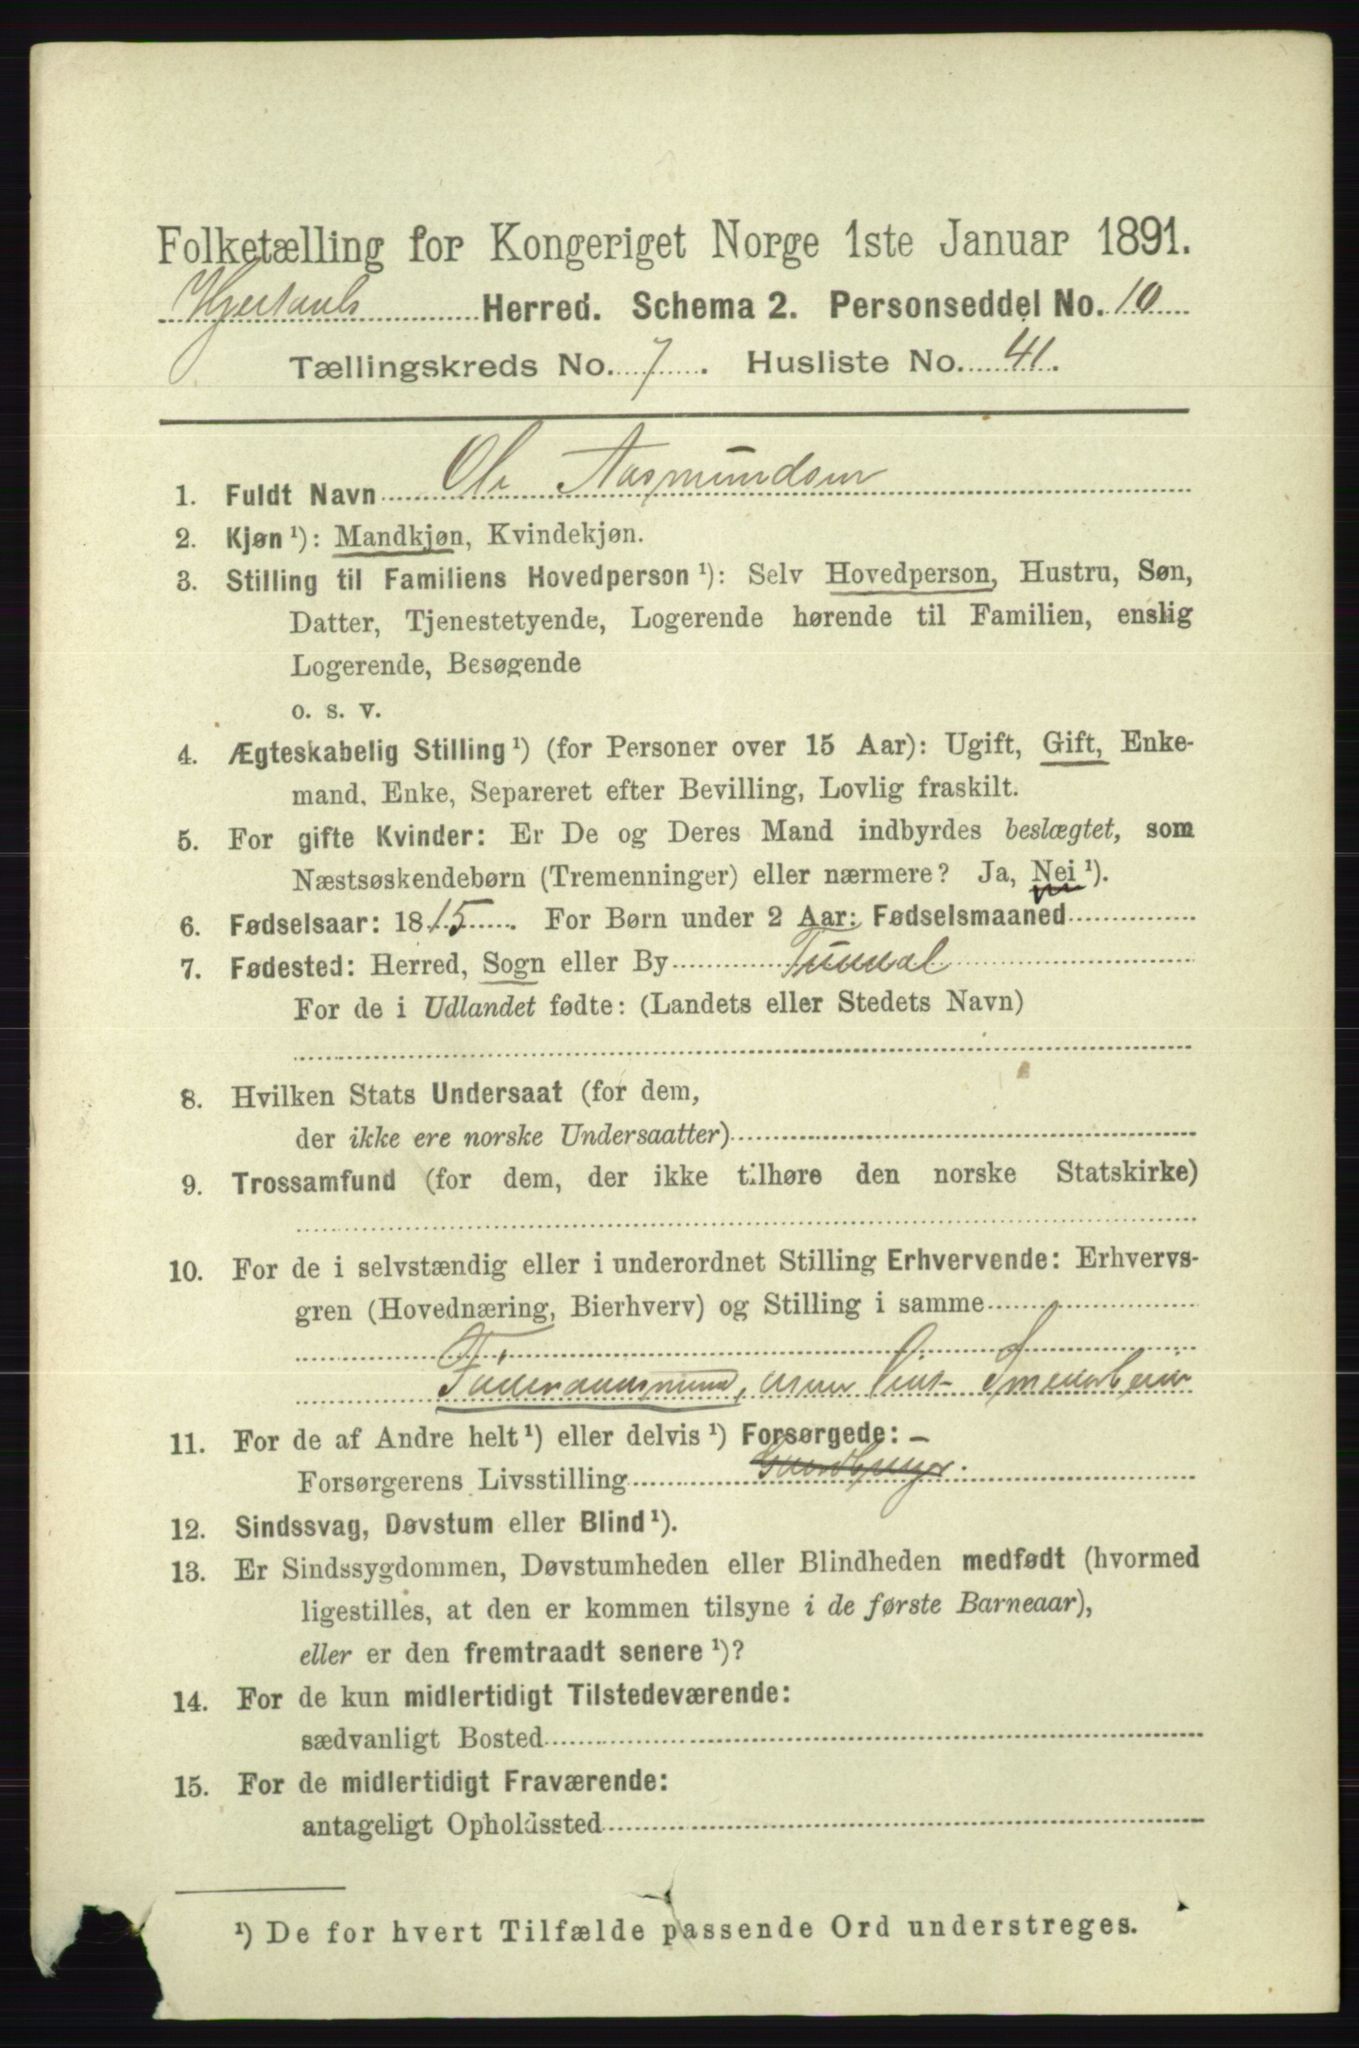 Folketælling for Kongeriget Norge 1ste Januar 1891.
Herred. Schema 2. Personseddel No. 10
Tællingskreds No. 7. Husliste No. 41.
1. Fuldt Navn Ole Aasmundsen
2. Kjøn ¹): Mandkjøn, Kvindekjøn.
3. Stilling til Familiens Hovedperson ¹): Selv Hovedperson, Hustru, Søn,
Datter, Tjenestetyende, Logerende hørende til Familien, enslig
Logerende, Besøgende
o. s. v.
4. Ægteskabelig Stilling ¹) (for Personer over 15 Aar): Ugift, Gift, Enke-
mand, Enke, Separeret efter Bevilling, Lovlig fraskilt.
5. For gifte Kvinder: Er De og Deres Mand indbyrdes beslægtet, som
Næstsøskendebørn (Tremenninger) eller nærmere? Ja, Nei ¹).
6. Fødselsaar: 1815. For Børn under 2 Aar: Fødselsmaaned
7. Fødested: Herred, Sogn eller By Tuddal
For de i Udlandet fødte: (Landets eller Stedets Navn)
8. Hvilken Stats Undersaat (for dem,
der ikke ere norske Undersaatter)
9. Trossamfund (for dem, der ikke tilhøre den norske Statskirke)
10. For de i selvstændig eller i underordnet Stilling Erhvervende: Erhvervs-
gren (Hovednæring, Bierhverv) og Stilling i samme
11. For de af Andre helt ¹) eller delvis ¹) Forsørgede: –
Forsørgerens Livsstilling Gaardbruger.
12. Sindssvag, Døvstum eller Blind ¹).
13. Er Sindssygdommen, Døvstumheden eller Blindheden medfødt (hvormed
ligestilles, at den er kommen tilsyne i de første Barneaar),
eller er den fremtraadt senere ¹)?
14. For de kun midlertidigt Tilstedeværende:
sædvanligt Bosted
15. For de midlertidigt Fraværende:
antageligt Opholdssted
¹) De for hvert Tilfælde passende Ord understreges.